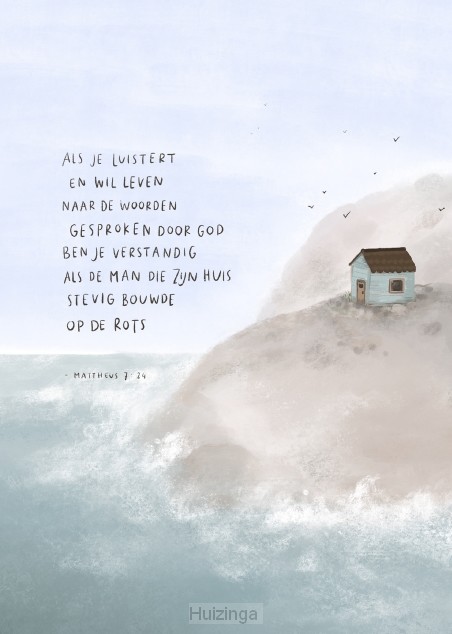 ALS JE LUISTERT
EN WIL LEVEN
NAAR DE WOORDEN
GESPROKEN DOOR GOD
BEN JE VERSTANDIG
ALS DE MAN DIE ZIJN HUIS
STEVIG BOUWDE
OP DE ROTS
- MATTHEUS 7:24
Huizinga